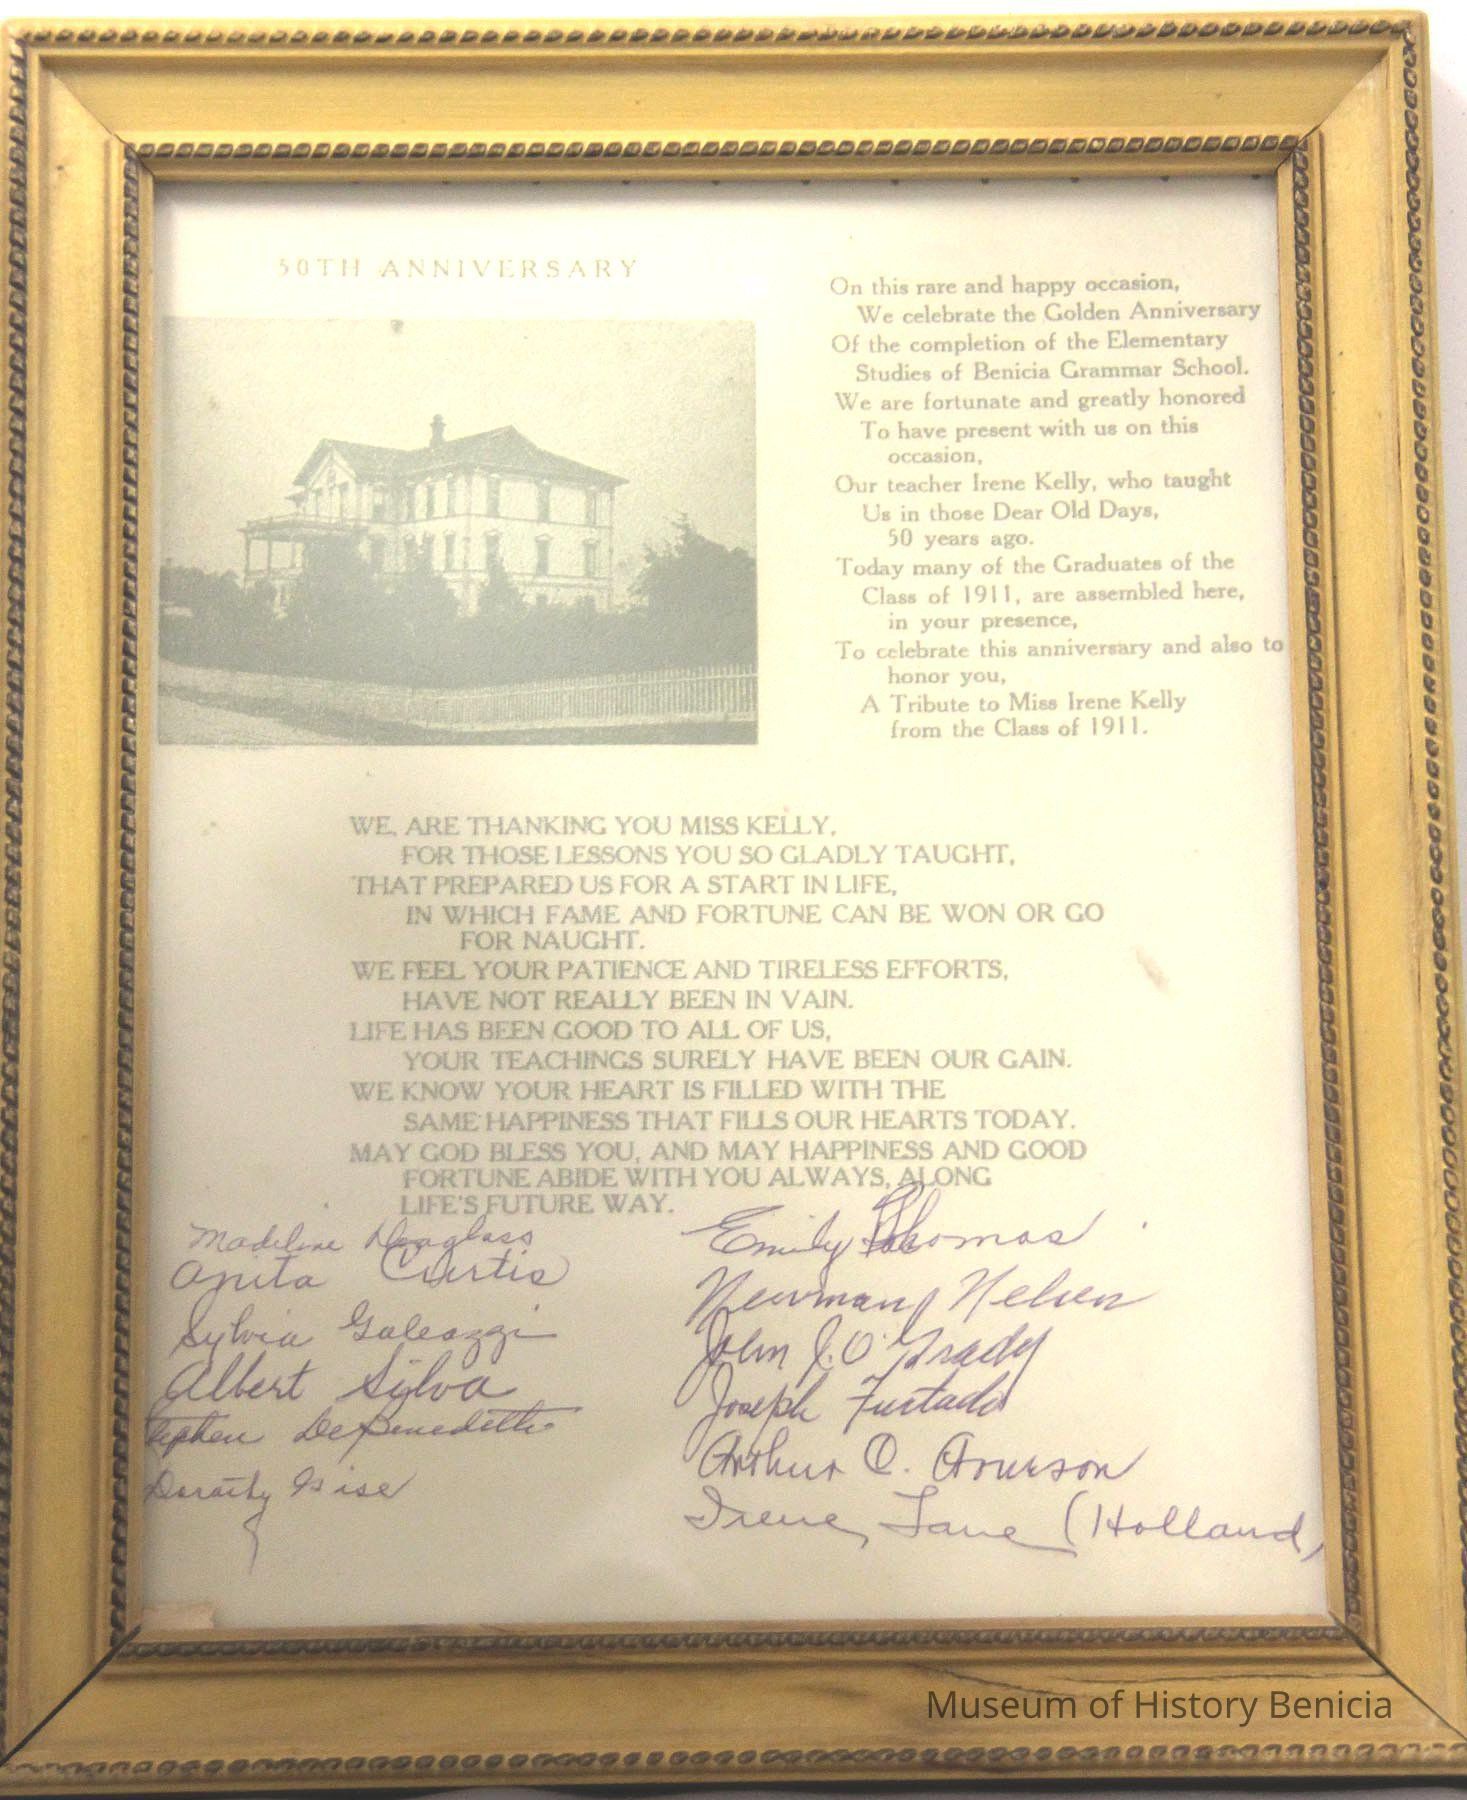 50TH ANNIVERSARY
On this rare and happy occasion,
We celebrate the Golden Anniversary
Of the completion of the Elementary
Studies of Benicia Grammar School.
We are fortunate and greatly honored
To have present with us on this
occasion,
Our teacher Irene Kelly, who taught
Us in those Dear Old Days,
50 years ago.
Today many of the Graduates of the
Class of 1911, are assembled here,
in your presence,
To celebrate this anniversary and also to
honor you,
A Tribute to Miss Irene Kelly
from the Class of 1911.
WE, ARE THANKING YOU MISS KELLY,
FOR THOSE LESSONS YOU SO GLADLY TAUGHT,
THAT PREPARED US FOR A START IN LIFE,
IN WHICH FAME AND FORTUNE CAN BE WON OR GO
FOR NAUGHT.
WE FEEL YOUR PATIENCE AND TIRELESS EFFORTS,
HAVE NOT REALLY BEEN IN VAIN.
LIFE HAS BEEN GOOD TO ALL OF US,
YOUR TEACHINGS SURELY HAVE BEEN OUR GAIN.
WE KNOW YOUR HEART IS FILLED WITH THE
SAME HAPPINESS THAT FILLS OUR HEARTS TODAY.
MAY GOD BLESS YOU, AND MAY HAPPINESS AND GOOD
FORTUNE ABIDE WITH YOU ALWAYS, ALONG
LIFE'S FUTURE WAY.
Madeline Douglass
Anita Curtis
Sylvia Galeazzi
Albert Silva
Stephen DeBenedetti
Dorothy
Emily Thomas
Newman Nelson
John J. O'Grady
Joseph Furtado
Arthur O.
Irene Lane (Holland)
Museum of History Benicia